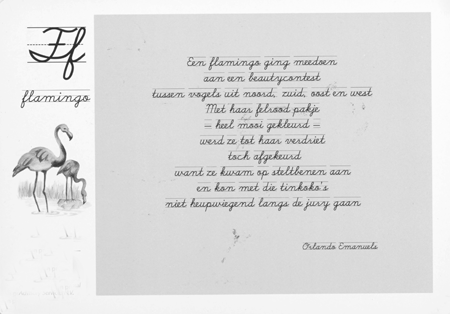 Ff
flamingo
Een flamingo ging meedoen
aan een beautycontest
tussen vogels uit noord, zuid, oost en west
Met haar felrood pakje
= heel mooi gekleurd =
werd ze tot haar verdriet
toch afgekeurd
want ze kwam op steltbenen aan
en kon met die tinkoko's
niet heupwiegend langs de jury gaan
Orlando Emanuels